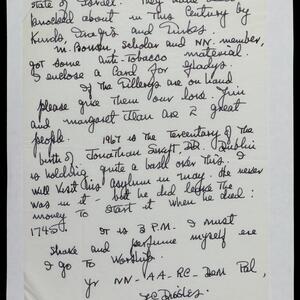 State of Israel. They have been
knocked about in this Century by
Kurds, Iraqis and Turks.
M. Bonsu, Scholar and NN. member,
got some Anti-Tobacco material.
I enclose a Card for Gladys.
If the Tillerys are on hand
please give them our love. Jim
and Margaret Jean are 2 great
people. 1967 is the Tercentary of the
birth of Jonathan Swift, DD. Dublin
is holding quite a bash over this. I
will visit his asylum in May. He never
was in it - but he did leave the
money to start it when he died:
1745. It is 8 P.M. I must
shave and perfume myself ere
I go to Worship.
Yr NN-AA-RC- Pal,